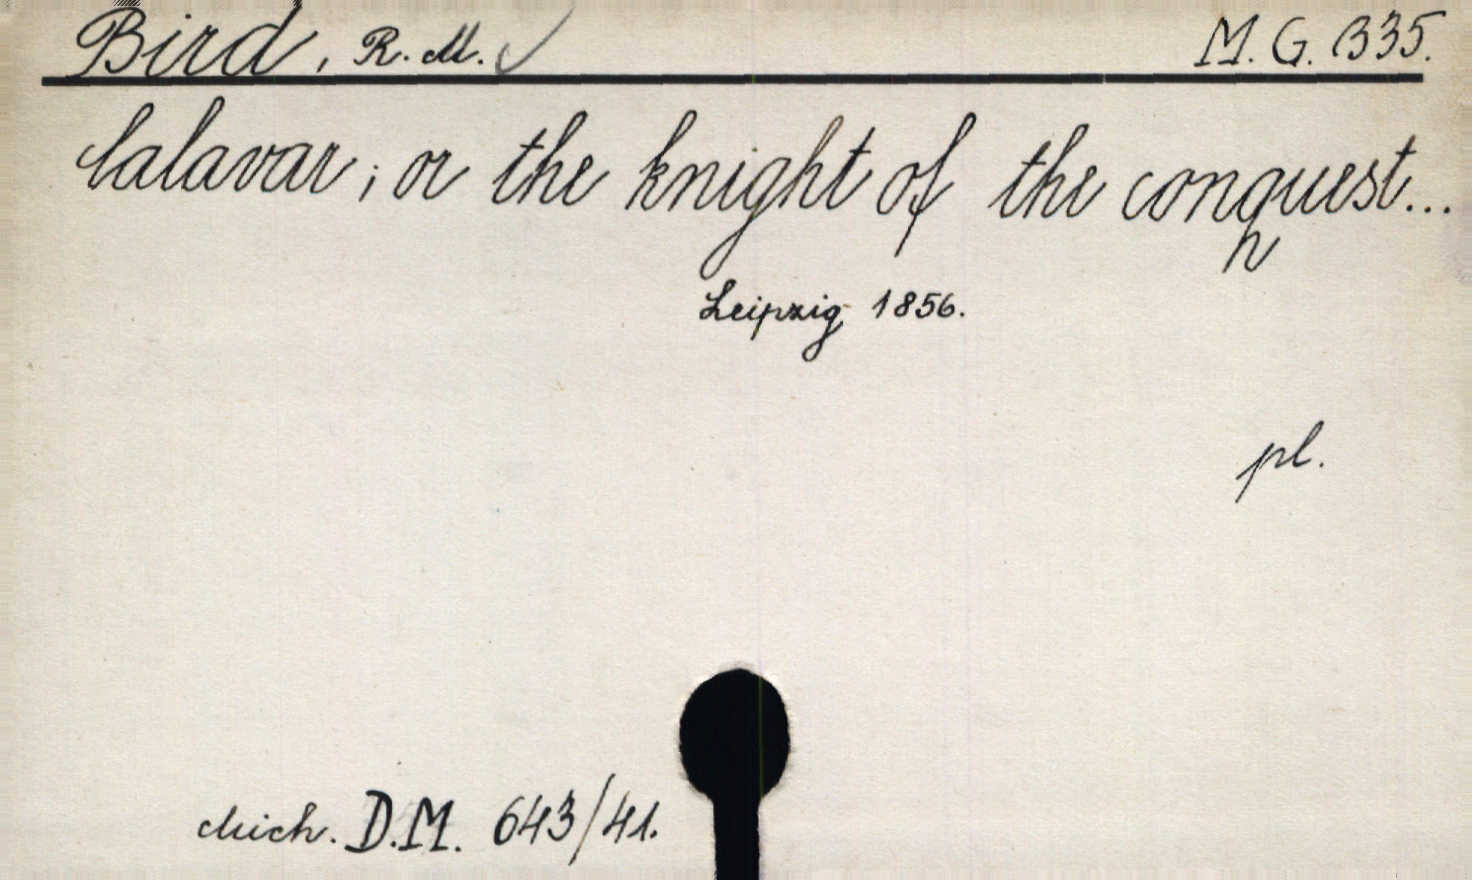 Bird, R. M. ✓ M. G. 1335.
Calavar; or the knight of the conquest...
Leipzig 1856.
pl.
Mich. D.M. 643/41.